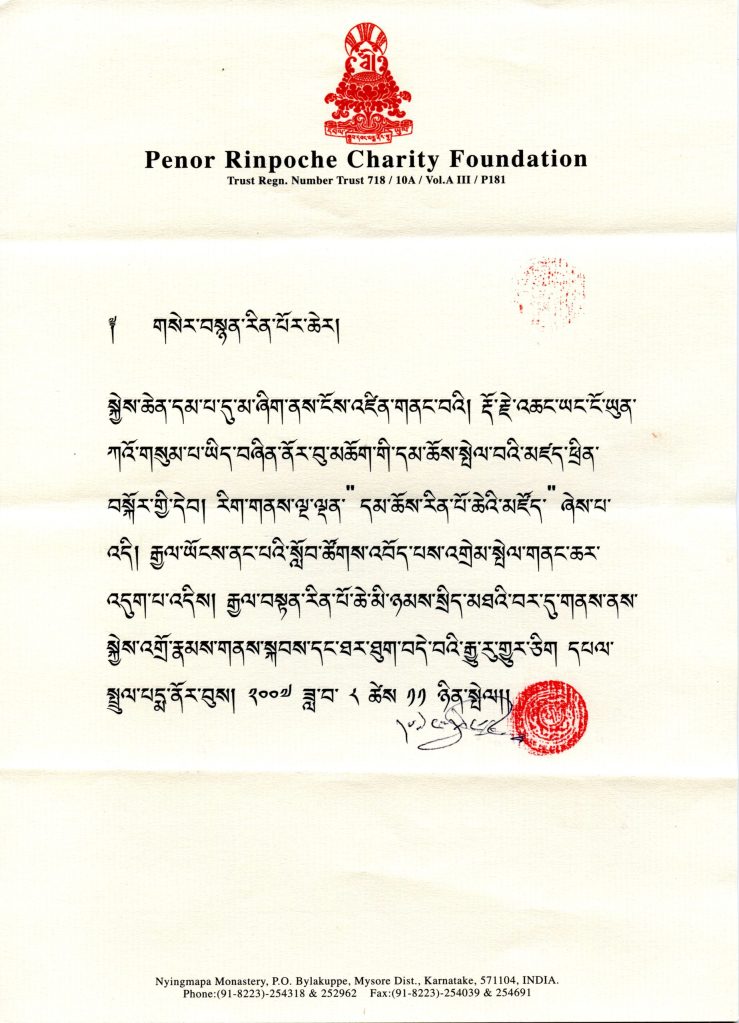 Penor Rinpoche Charity Foundation
Trust Regn. Number Trust 718 / 10A / Vol.A III / P181
༄ གསེར་བསྙན་རིན་པོར་ཆེར།
སྐྱེས་ཆེན་དམ་པ་དུ་མ་ཞིག་ནས་ངོས་འཛིན་གནང་བའི། རྡོ་རྗེ་འཆང་ཡང་ངོ་ཡུན་
ཀའོ་གསུམ་པ་ཡིད་བཞིན་ནོར་བུ་མཆོག་གི་དམ་ཆོས་སྤེལ་བའི་མཛད་ཕྲིན་
བསྐོར་གྱི་དེབ། རིག་གནས་ལྔ་ལྡན་"དམ་ཆོས་རིན་པོ་ཆེའི་མཛོད་"ཞེས་པ་
འདི། རྒྱལ་ཡོངས་ནང་པའི་སློབ་ཚོགས་འབོད་པས་འགྲེམ་སྤེལ་གནང་ཆར་
འདུག་པ་འདིས། རྒྱལ་བསྟན་རིན་པོ་ཆེ་མི་ཉམས་སྲིད་མཐའི་བར་དུ་གནས་ནས་
སྐྱེས་འགྲོ་རྣམས་གནས་སྐབས་དང་ཐར་ཐུག་བདེ་བའི་རྒྱུ་རུ་གྱུར་ཅིག དཔལ་
སྤྲུལ་པདྨ་ནོར་བུས། ༢༠༠༧ ཟླ་བ་ ༨ ཚེས་ ༡༡ ཉིན་སྤེལ།།
Nyingmapa Monastery, P.O. Bylakuppe, Mysore Dist., Karnatake, 571104, INDIA.
Phone:(91-8223)-254318 & 252962 Fax:(91-8223)-254039 & 254691